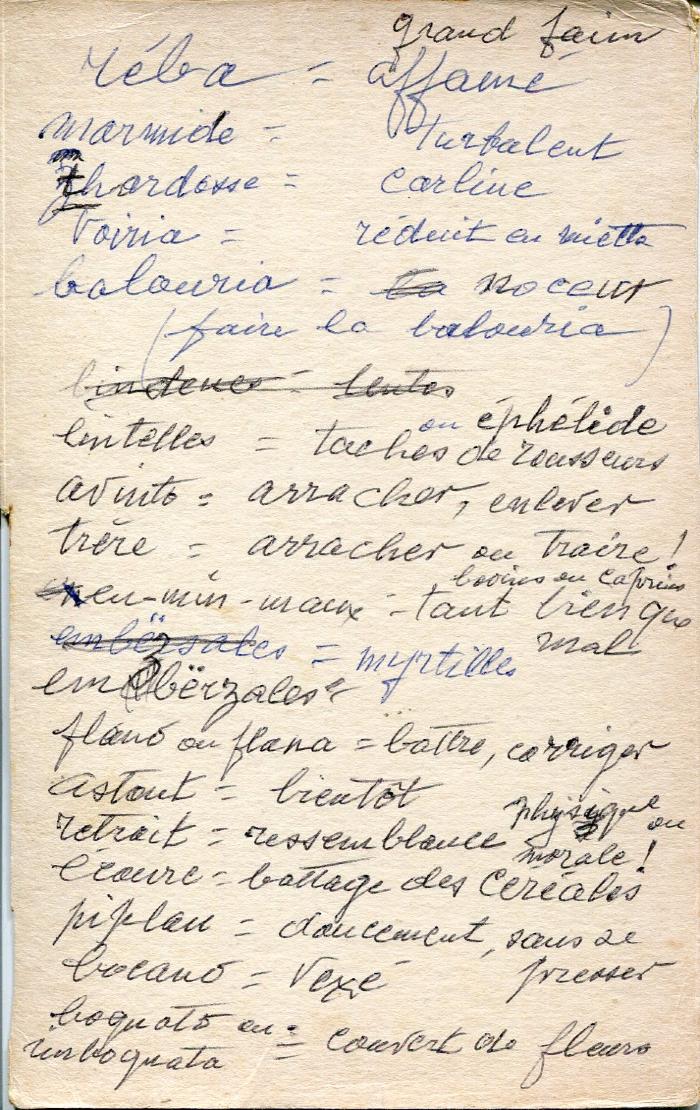 grand faim
réba = affamé
marmide = turbulent
hardosse = carline
voiria = réduit en miette
balouria = la noceur
(faire la balouria)
lindenes = lentes
ou éphélide
lintelles = taches de rousseurs
avinto = arracher, enlever
trére = arracher ou traire!
bovins ou caprins
en-min-maux = tant bien que
mal
embërsales = myrtilles
embërzales"
flanò ou flana = battre, corriger
astout = bientôt
physique ou
retrait = ressemblance
morale!
écoure = battage des céréales
piplan = doucement, sans se
presser
bocanò = vexé
boquatò ou
imboquata = couvert de fleurs